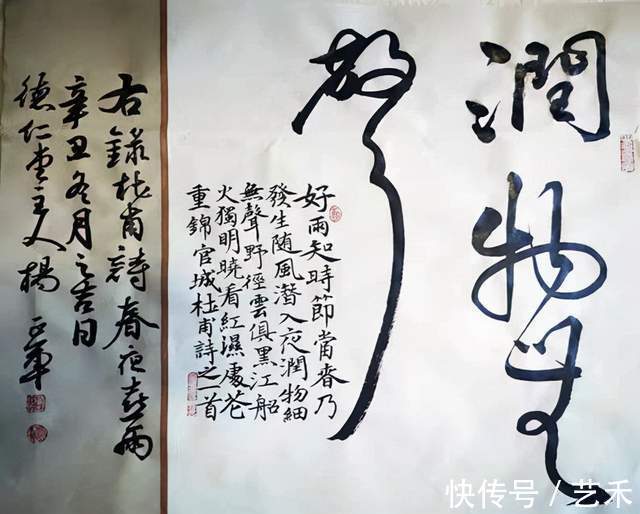 潤物無
聲
好雨知時節當春乃
發生随風潛入夜潤物細
無聲野徑雲俱黑江船
火獨明曉看紅濕處花
重錦官城杜甫詩之一首
右錄杜甫詩春夜喜雨
辛丑冬月之吉日
德仁堂主人楊
快传号 / 艺禾